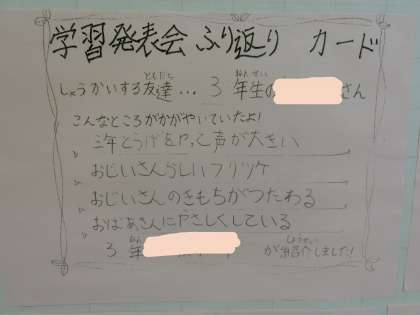 学習発表会 ふり返り カード
しょうかいする友達... 3年生の さん
こんなところがかがやいていたよ!
三年とうげをやって声が大きい
おじいさんらしいフリツケ
おじいさんのきもちがつたわる
おばあさんにやさしくしている
3年 が紹介しました!